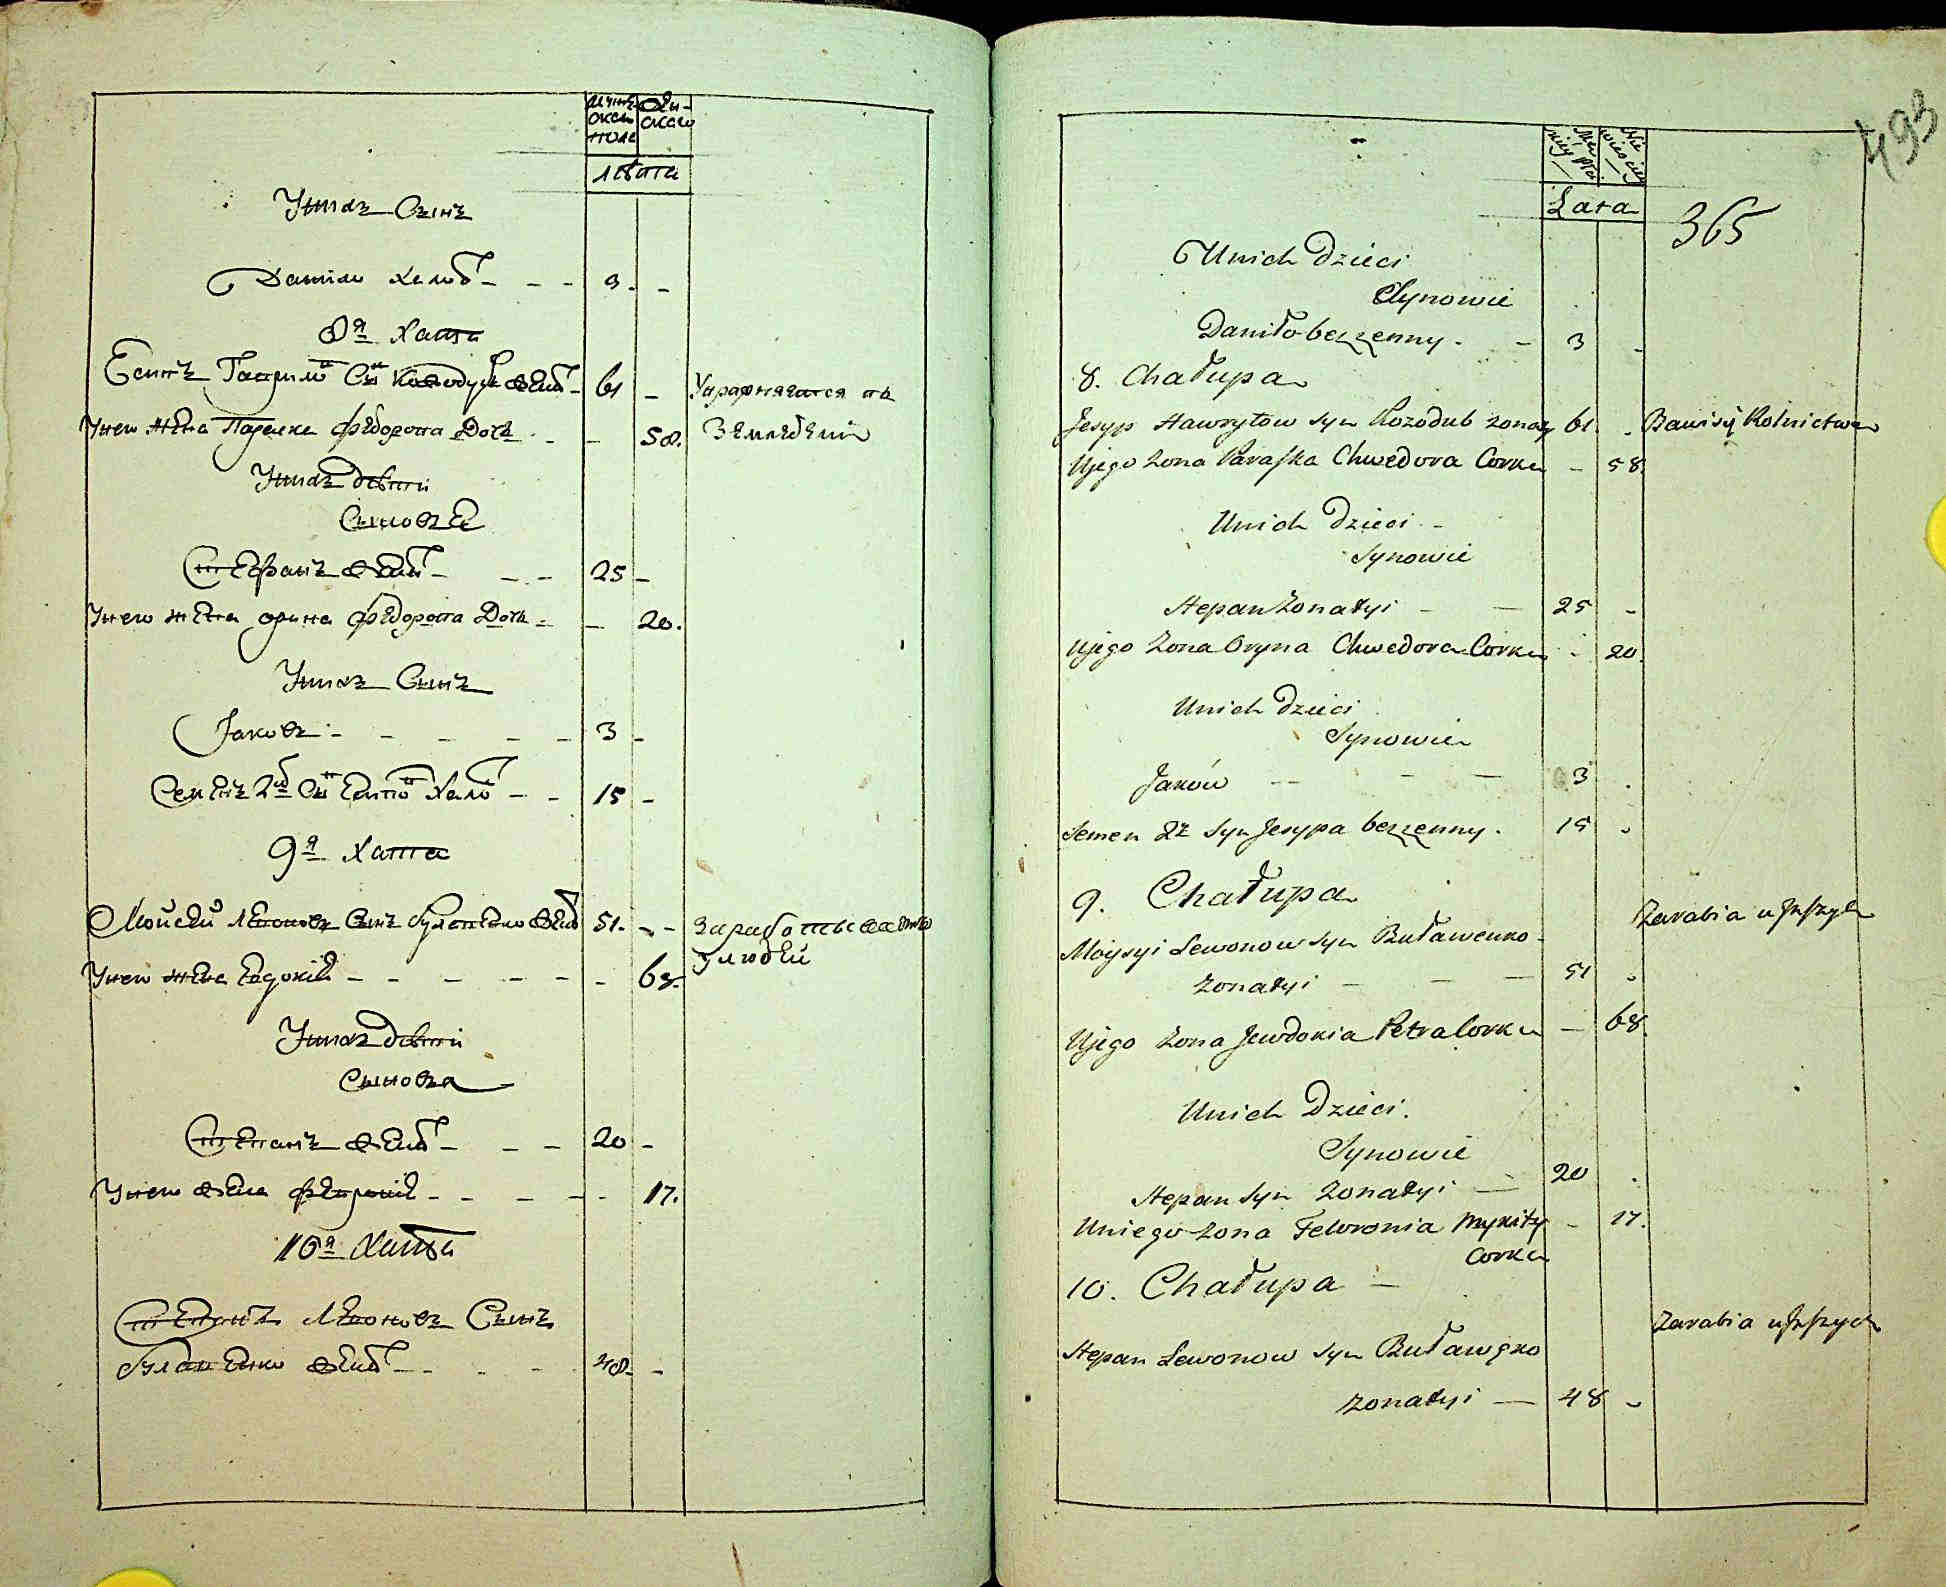 мужеска поле
женска
лѣта
У тихъ Сынъ
Данило Холост - - - 3. -
8я Хата
Есипъ Гаврилов Сн Козодуб жена - 61 - Упражняется в
У него жена Параска Федорова Дочь - - 58. Земледелии
У тихъ дѣти
Сыновъе
Стефанъ женат - - - 25 -
У него жена орина федорова Дочь - - 20.
У тихъ Сынъ
Јаковъ - - - - - 3 -
Семенъ 2й Сн Есипов Холос - - 15 -
9я Хата
Мойсей Левоновъ Сынъ Булавенко жена 51. - - Заработывает
У него жена Евдокия - - - - - - 68. у людей
У тихъ дѣти
Сыновъя
Степанъ женат - - - 20 -
У него жена феврония - - - - - 17.
10я Хата
Степанъ Левоновъ Сынъ
Булавенко женат - - - 48. -
493
365
Lata
U nich Dzieci
Synowie
Daniło bezzenny. - 3 -
8. Chałupa
Jesyp Hawryłow syn Kozodub zonaty 61. . Bawi się Rolnictwem
U jego Zona Paraska Chwedora Corka - 58.
U nich Dzieci -
Synowie
Stepan Zonatyi - - 25 -
U jego Zona Oryna Chwedora Corka - 20.
U nich Dzieci
Synowie
Jaków - - - 3 .
Semen 2i syn Jesypa bezzenny. 15 .
9. Chałupa
Zarabia u Inszych
Moysyi Lewonow syn Buławenko -
Zonatyi - - - 51 .
U jego Zona Jewdokia Petra Corka - 68.
U nich Dzieci.
Synowie
Stepan syn Zonatyi - 20 .
U niego Zona Fewronia Mykity - 17.
Corka
10. Chałupa -
Zarabia u Inszych
Stepan Lewonow syn Buławęko
Zonatyi - 48 .